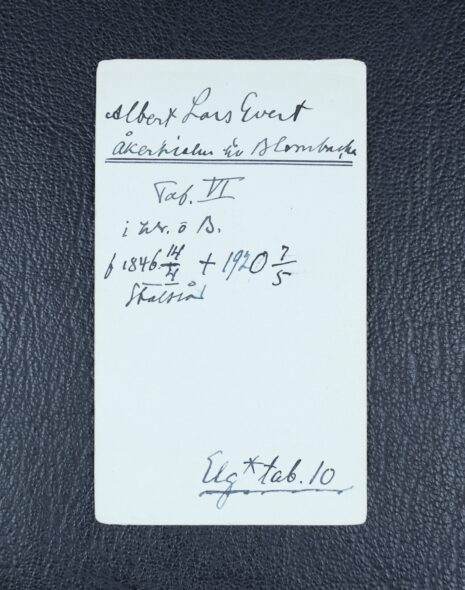 Albert Lars Evert
Åkerhielm av Blombacka
Taf. VI
i W. o B.
f 1846 14/4 + 1920 7/5
Statsråd
Elg* tab. 10